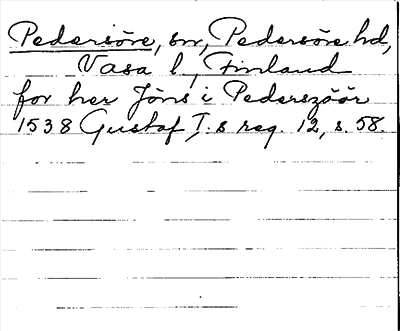 Pedersöre, sn, Pedersöre hd,
Vasa l., Finland
for her Jöns i Pederszöör
1538 Gustaf I.s reg. 12, s. 58.